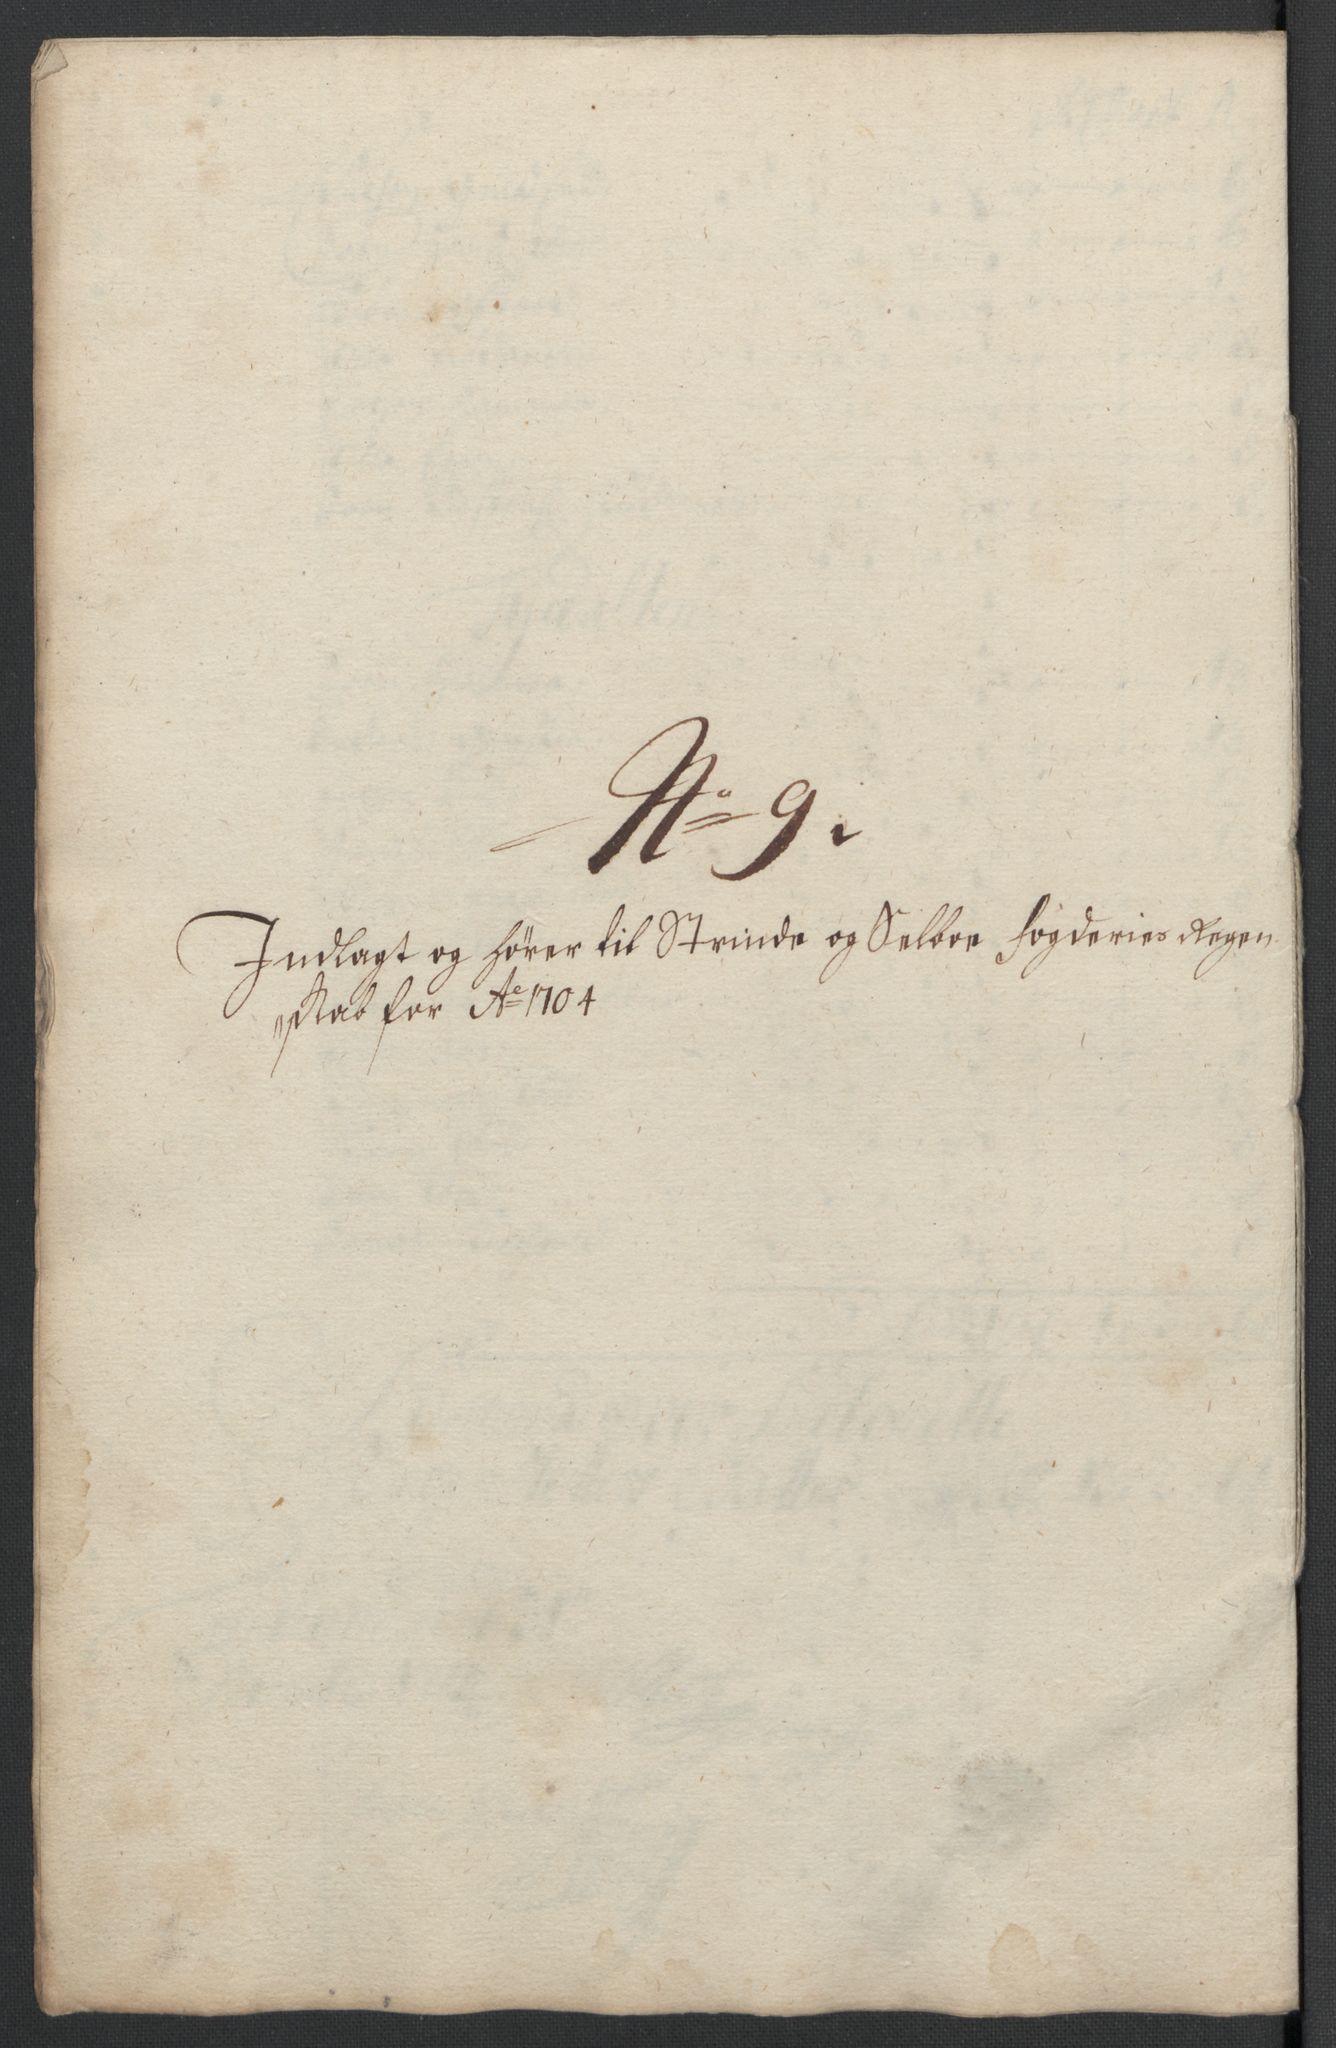 No 9.
Indlagt og hører til Strinde og Selboe fogderies Regen
skab for Ao 1704